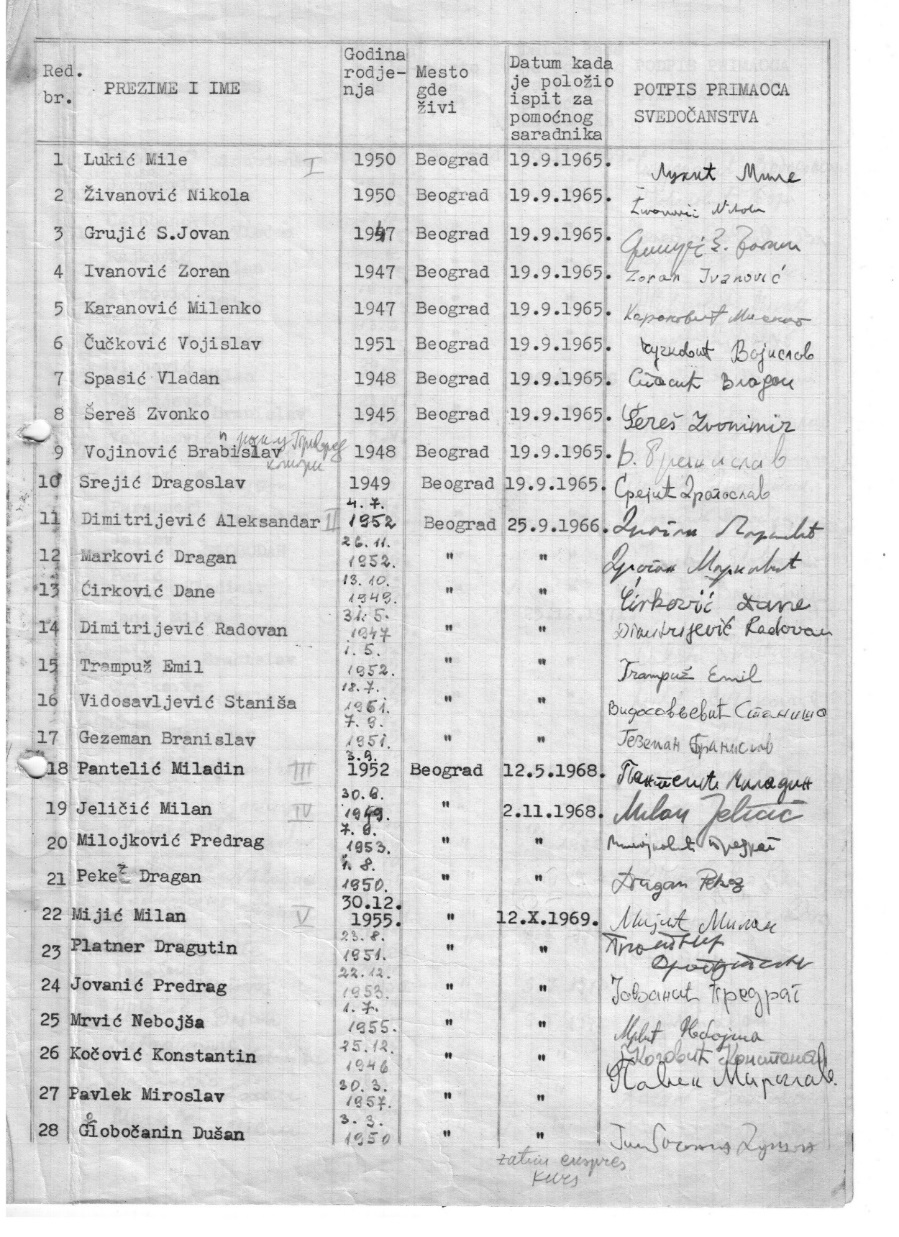 Red. br. PREZIME I IME Godina rodje-nja Mesto gde živi Datum kada je položio ispit za pomoćnog saradnika POTPIS PRIMAOCA SVEDOČANSTVA
1 Lukić Mile I 1950 Beograd 19.9.1965. Лукић Миле
2 Živanović Nikola 1950 Beograd 19.9.1965. Živanović Nikola
3 Grujić S.Jovan 1947 Beograd 19.9.1965.
4 Ivanović Zoran 1947 Beograd 19.9.1965. Zoran Ivanović
5 Karanović Milenko 1947 Beograd 19.9.1965. Карановић Миленко
6 Čučković Vojislav 1951 Beograd 19.9.1965. Чучковић Војислав
7 Spasić Vladan 1948 Beograd 19.9.1965. Спасић Владан
8 Šereš Zvonko 1945 Beograd 19.9.1965. Šereš Zvonimir
n
9 Vojinović Brabislav 1948 Beograd 19.9.1965. В. Бранислав
10 Srejić Dragoslav 1949 Beograd 19.9.1965. Срејић Драгослав
11 Dimitrijević Aleksandar II 4.7. 1952 Beograd 25.9.1966.
12 Marković Dragan 26.11. 1952. " " Драган Марковић
13 Ćirković Dane 13.10. 1949. " " Ćirković Dane
14 Dimitrijević Radovan 31.5. 1947 " " Dimitrijević Radovan
15 Trampuž Emil 1.5. 1952. " " Trampuž Emil
16 Vidosavljević Staniša 18.7. 1951. " " Видосављевић Станиша
17 Gezeman Branislav 7.9. 1951. " " Геземан Бранислав
18 Pantelić Miladin III 3.9. 1952 Beograd 12.5.1968. Пантелић Миладин
19 Jeličić Milan IV 30.6. 1949. " 2.11.1968. Milan Jeličić
20 Milojković Predrag 7.8. 1953. " " Милојковић Предраг
21 Pekež Dragan 1.8. 1950. " " Dragan Pekez
22 Mijić Milan V 30.12. 1955. " 12.X.1969. Мијић Милан
23 Platner Dragutin 23.8. 1951. " " Платнер Драгутин
24 Jovanić Predrag 22.12. 1953. " " Јованић Предраг
25 Mrvić Nebojša 1.7. 1955. " " Мрвић Небојша
26 Kočović Konstantin 25.12. 1946 " " Кочовић Константин
27 Pavlek Miroslav 30.3. 1957. " " Павлек Мирослав
28 Globočanin Dušan 3.3. 1950 " "
zatim ekspres
kurs